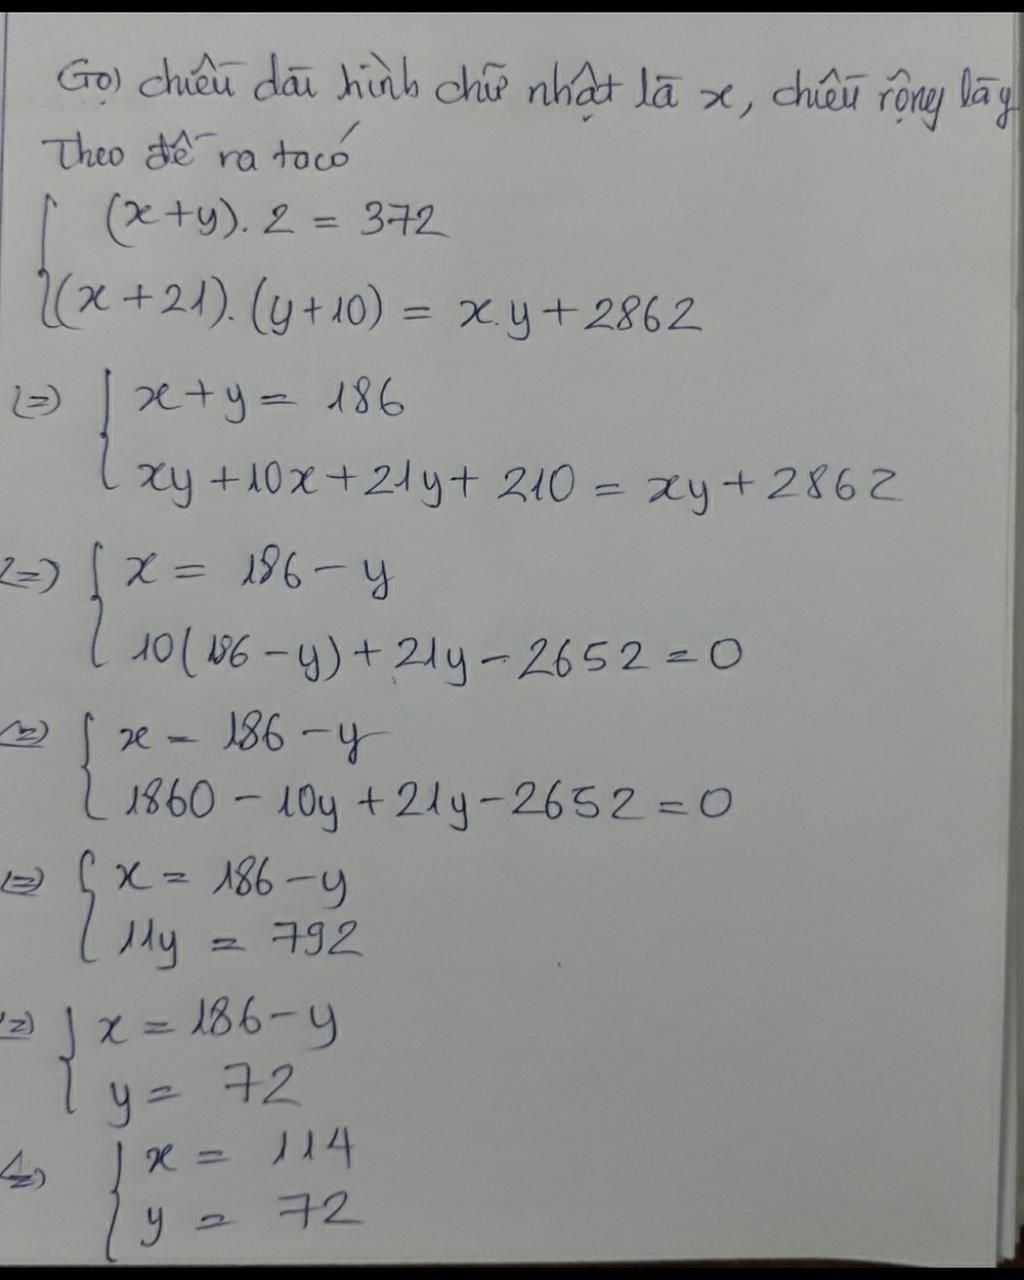 Gọi chiều dài hình chữ nhật là x, chiều rộng là y
Theo đề ra ta có
(x+y). 2 = 372
(x+21). (y+10) = x.y + 2862
(=) x+y = 186
xy + 10x + 21y + 210 = xy + 2862
(=) x = 186 - y
10(186 - y) + 21y - 2652 = 0
(=) x = 186 - y
1860 - 10y + 21y - 2652 = 0
(=) x = 186 - y
11y = 792
(=) x = 186 - y
y = 72
(=) x = 114
y = 72